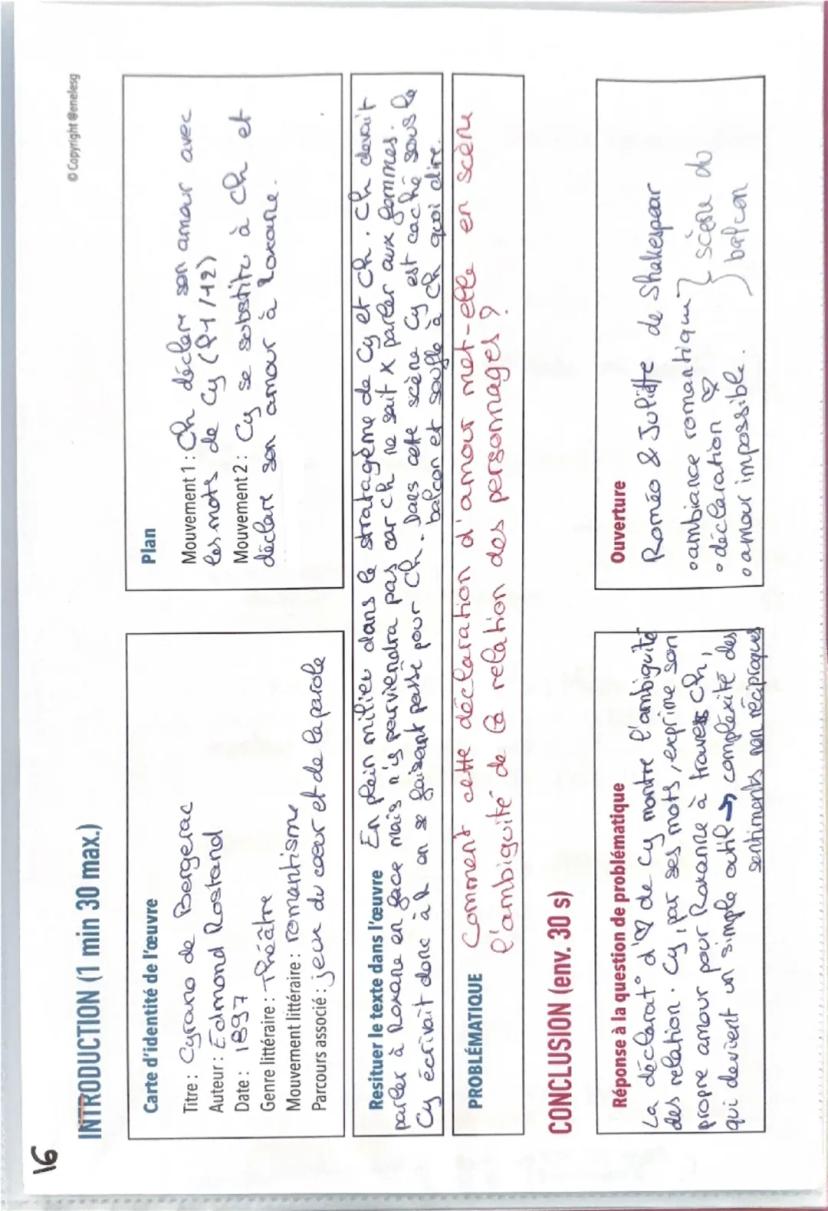 16
© Copyright @enelesg
INTRODUCTION (1 min 30 max.)
Carte d'identité de l'œuvre
Titre : Cyrano de Bergerac
Auteur : Edmond Rostand
Date : 1897
Genre littéraire : Théâtre
Mouvement littéraire : romantisme
Parcours associé : jeux du cœur et de la parole
Plan
Mouvement 1 : Ch déclare son amour avec
les mots de Cy (l1/12)
Mouvement 2 : Cy se substitu à Ch et
déclare son amour à Roxane.
Resituer le texte dans l'œuvre En plein milieu dans le stratagème de Cy et Ch. Ch devait
parler à Roxane en face mais n'y parviendra pas car ch ne sait x parler aux femmes.
Cy écrivait donc à R en se faisant passé pour Ch. Dans cette scène Cy est caché sous le
balcon et souffle à Ch quoi dire.
PROBLÉMATIQUE Comment cette déclaration d'amour met-elle en scène
l'ambiguité de la relation des personnages ?
CONCLUSION (env. 30 s)
Réponse à la question de problématique
La déclarat° d'♡ de Cy montre l'ambiguité
des relation. Cy, par ses mots, exprime son
propre amour pour Roxanne à travers Ch,
qui devient un simple outil → complexité des
sentiments non réciproques
Ouverture
Roméo & Juliette de Shakespear
◦ ambiance romantique } scène du
◦ déclaration ♡ balcon
◦ amour impossible.